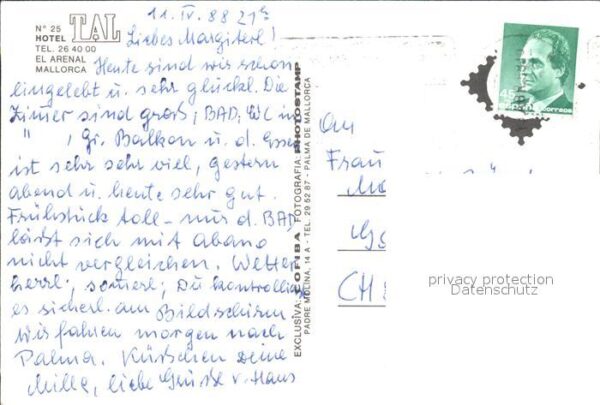 11. IV. 88 21h
Nº 25
HOTEL TAL
TEL. 26 40 00
EL ARENAL
MALLORCA
Liebes Margiterl!
Heute sind wir schon
eingelebt u. sehr glückl. Die
Zimer sind groß, BAD, WC im
" , gr. Balkon u. d. Essen
ist sehr sehr viel, gestern
abend u. heute sehr gut.
Frühstück toll - nur d. BAD
lässt sich mit Abano
nicht vergleichen. Wetter
herrl., somerl, Du kontrollier
es sicherl. am Bildschirm
Wir fahren morgen nach
Palma. Küsschen Deine
Milla, liebe Grüsse v. Hans
EXCLUSIVA: COFIBA FOTOGRAFIA: PHOTOSTAMP
PADRE MOLINA, 14 A - TEL. 29 52 87 - PALMA DE MALLORCA
45
ESPAÑA correos
An
Frau
CH
privacy protection
Datenschutz